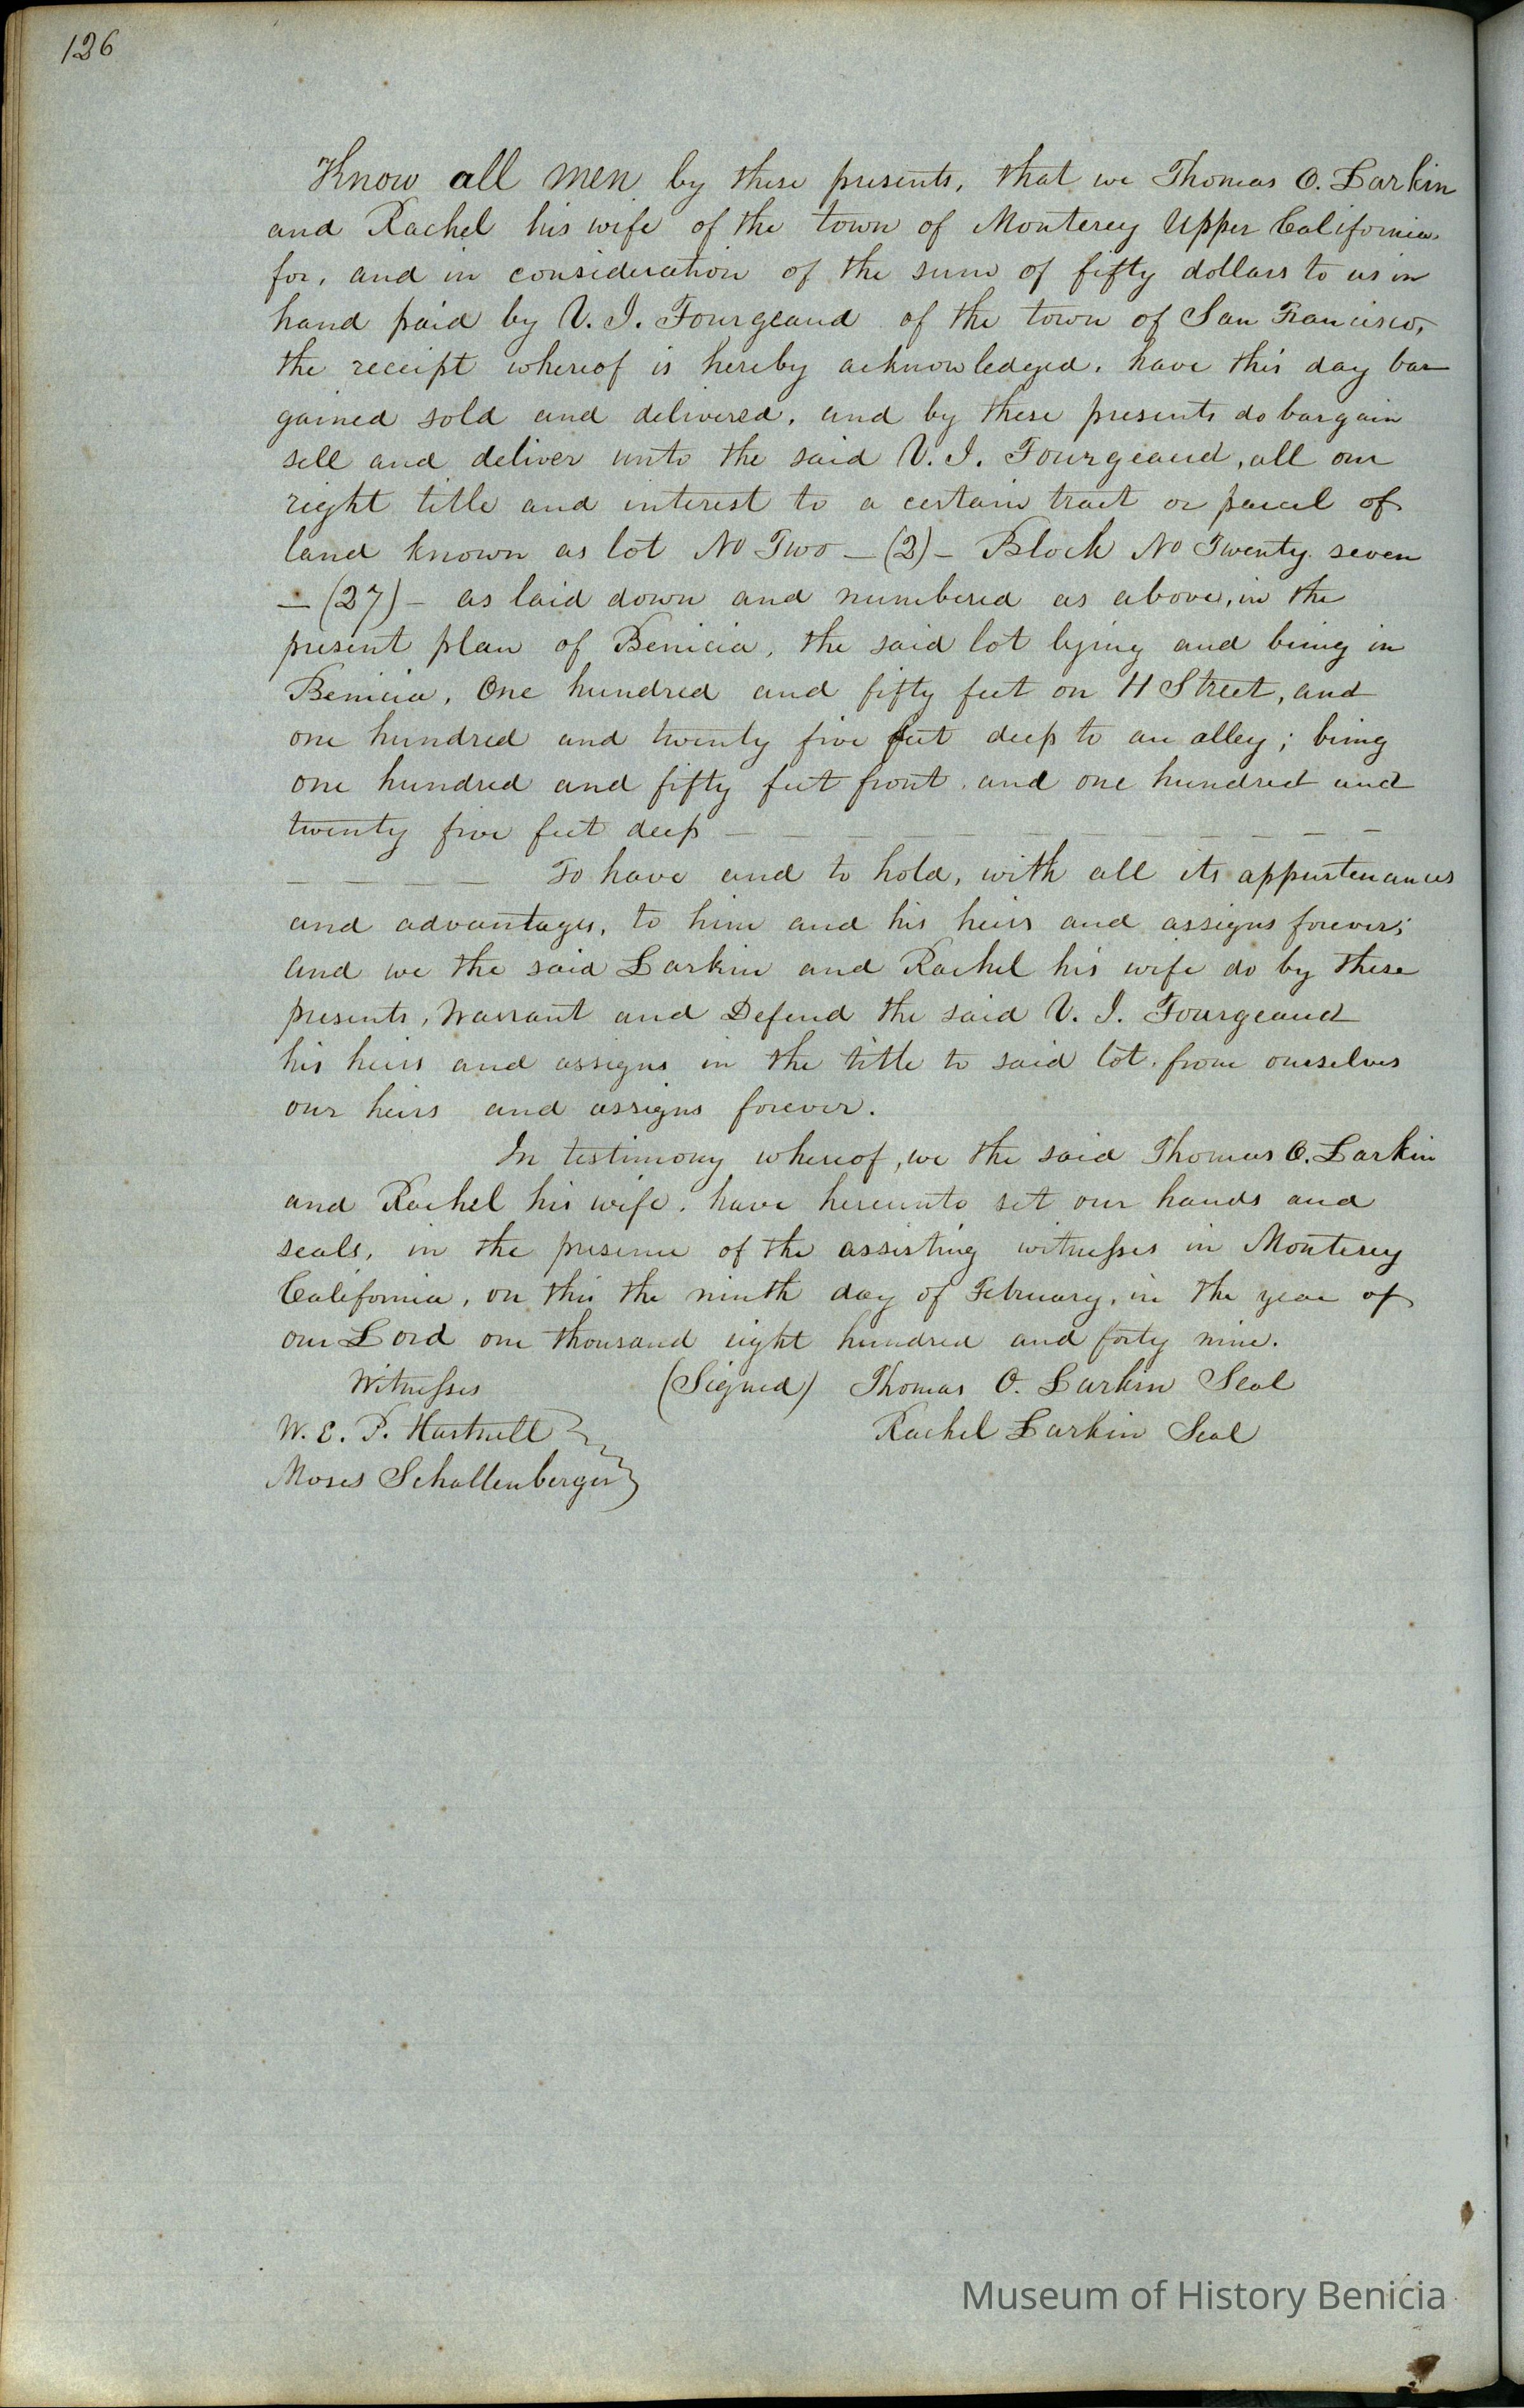 126
Know all men by these presents, that we Thomas O. Larkin
and Rachel his wife of the town of Monterey Upper California.
for, and in consideration of the sum of fifty dollars to us in
hand paid by V. J. Fourgeaud of the town of San Francisco,
the receipt whereof is hereby acknowledged, have this day bar
gained sold and delivered, and by these presents do bargain
sell and deliver unto the said V. J. Fourgeaud, all our
right title and interest to a certain tract or parcel of
land known as lot No Two - (2) - Block No Twenty seven
- (27) - as laid down and numbered as above, in the
present plan of Benicia, the said lot lying and being in
Benicia, One hundred and fifty feet on H Street, and
one hundred and twenty five feet deep to an alley; being
one hundred and fifty feet front, and one hundred and
twenty five feet deep - - - - - - - - -
- - - - To have and to hold, with all its appurtenances
and advantages, to him and his heirs and assigns forever;
and we the said Larkin and Rachel his wife do by these
presents, Warrant and Defend the said V. J. Fourgeaud
his heirs and assigns in the title to said lot, from ourselves
our heirs and assigns forever.
In testimony whereof, we the said Thomas O. Larkin
and Rachel his wife, have hereunto set our hands and
seals, in the presence of the assisting witnesses in Monterey
California, on this the ninth day of February, in the year of
our Lord one thousand eight hundred and forty nine.
Witnesses (Signed) Thomas O. Larkin Seal
W. E. P. Hartnell Rachel Larkin Seal
Moses Schallenberger
Museum of History Benicia